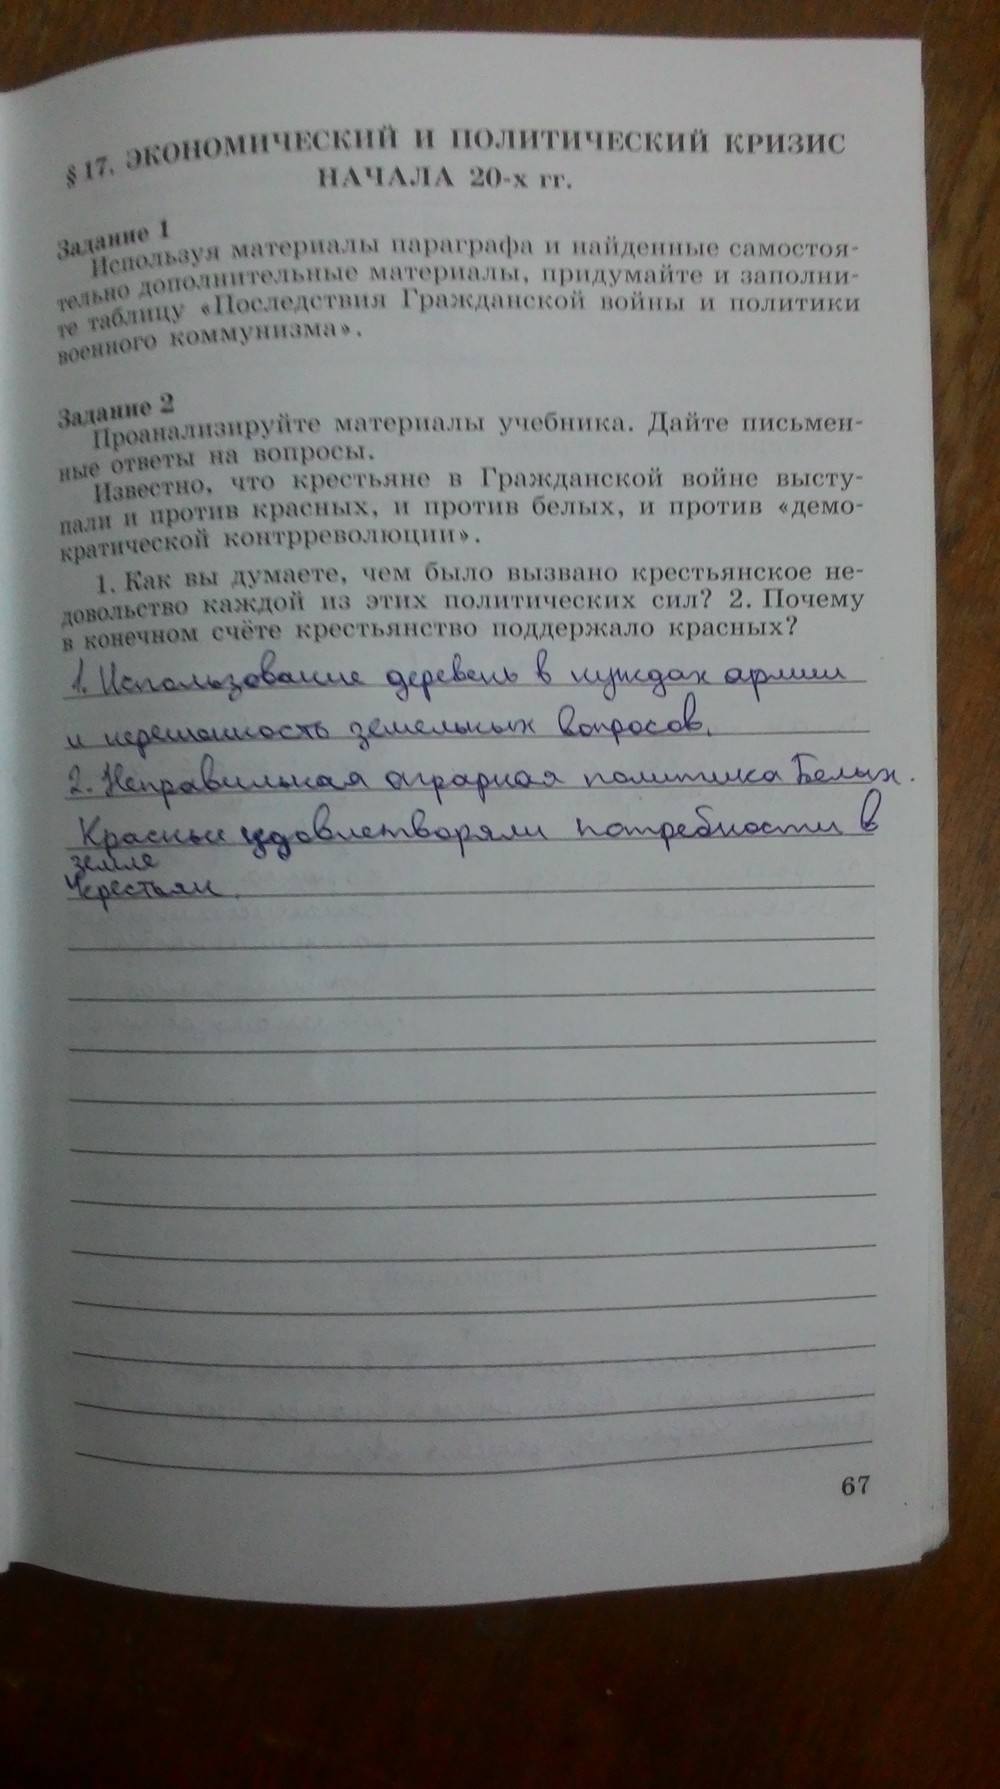 § 17. ЭКОНОМИЧЕСКИЙ И ПОЛИТИЧЕСКИЙ КРИЗИС
НАЧАЛА 20-х гг.
Задание 1
Используя материалы параграфа и найденные самостоя-
тельно дополнительные материалы, придумайте и заполни-
те таблицу «Последствия Гражданской войны и политики
военного коммунизма».
Задание 2
Проанализируйте материалы учебника. Дайте письмен-
ные ответы на вопросы.
Известно, что крестьяне в Гражданской войне высту-
пали и против красных, и против белых, и против «демо-
кратической контрреволюции».
1. Как вы думаете, чем было вызвано крестьянское не-
довольство каждой из этих политических сил? 2. Почему
в конечном счёте крестьянство поддержало красных?
1. Использование деревень в нуждах армии
и нерешонность земельных вопросов.
2. Неправильная аграрная политика Белых.
Красные удовлетворяли потребности в
земле
крестьян.
67